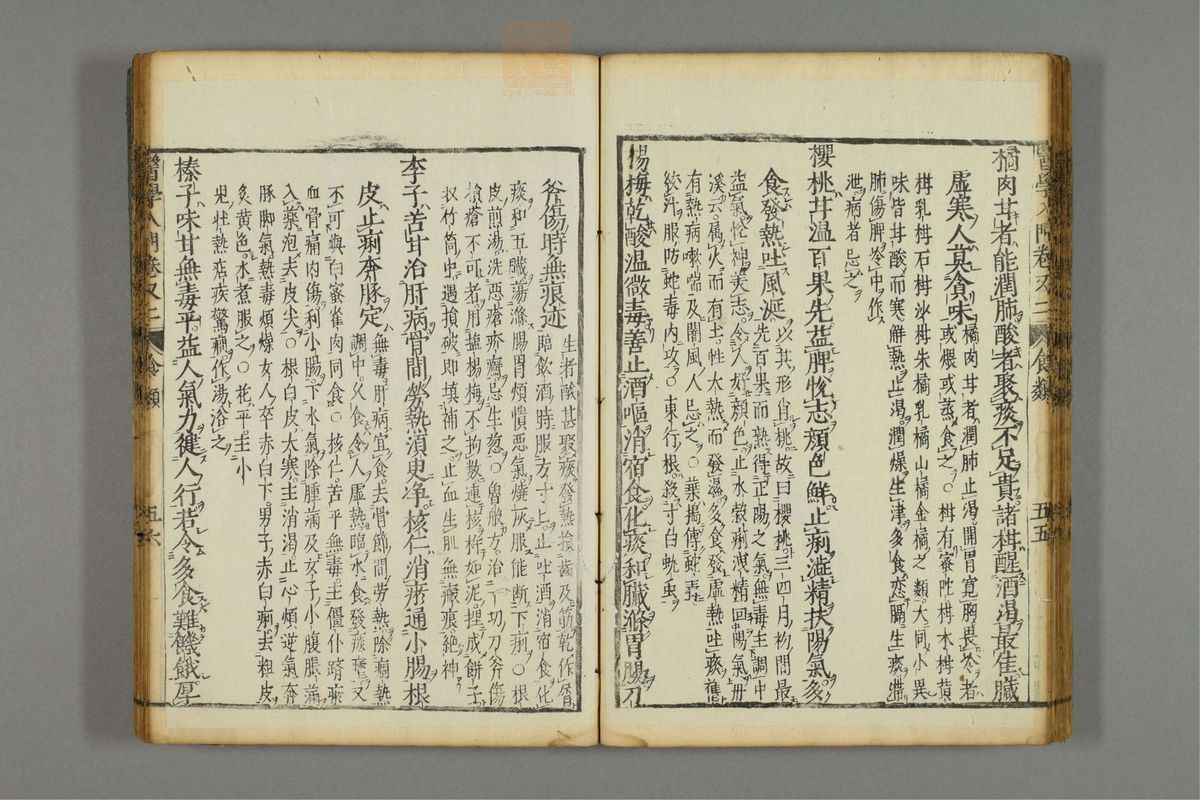 橘肉甘者能潤肺酸者聚痰不足貴諸柑醒酒渴最佳臟
虛寒人莫貪味
橘肉甘者潤肺止渴開胃寬胸畏冷者
或煨或蒸食之○柑有
柑乳柑石柑沙柑朱橘乳橘山橘金橘之類大同小異
味皆甘酸而寒解熱止渴潤燥生津多食戀膈生痰滯
肺傷脾冷中作
泄病者忌之
櫻桃甘溫百果先益脾悅志顏色鮮止痢澁精扶陽氣多
食發熱吐風涎
以其形肖桃故曰櫻桃三四月初間最
先百果而熟得正陽之氣無毒主調中
益氣悅神美志令人好顏色止水穀痢洩精回陽氣丹
溪云屬火而有土性大熱而發濕多食發虛熱吐痰舊
有熱病嗽喘及闇風人忌之○葉搗傅蛇毒
絞汁服防蛇毒內攻○東行根殺寸白蚘虫
楊梅乾酸溫微毒善止酒嘔消宿食化痰和臟滌胃腸刀
醫學入門卷又二
食類
五五
斧傷時無痕迹
生者酸甚聚痰發熱損齒及筋乾作屑
臨飲酒時服方寸匕止吐酒消宿食化
痰和五臟蕩滌腸胃煩憒惡氣燒灰服能断下痢○根
皮煎湯洗惡瘡疥癬忌生葱○魯般方治一切刀斧傷
損瘡不可者用塩楊梅不拘数連核杵如泥捏成餅子
収竹筒中遇損破即填補之止血生肌無瘢痕絕神
李子苦甘治肝病骨間勞熱須臾凈核仁消瘀通小腸根
皮止痢奔豚定
無毒肝病宜食去骨節間劳熱除痼熱
調中久食令人虛熱臨水食發痰瘧又
不可與白蜜雀肉同食○核仁苦平無毒主僵仆躋瘀
血骨痛肉傷利小腸下水氣除腫滿及女子小腹腫滿
入藥泡去皮尖○根白皮大寒主消渴止心煩逆氣奔
豚脚氣熱毒煩燥女人卒赤白下男子赤白痢去粗皮
灸黃色水煮服之○花平主小
兒壯熱痁疾驚癇作湯浴之
榛子味甘無毒平益人氣力健人行若令多食難饑餓厚
醫學入門卷又二
食類
五六